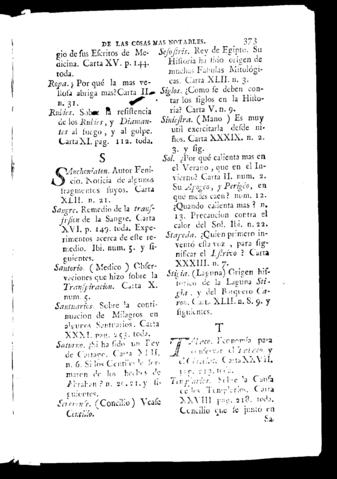 DE LAS COSAS MAS NOTABLES. 373
gio de sus Escritos de Me-
dicina. Carta XV. p. 144.
toda.
Ropa. ¿Por qué la mas ve-
llosa abriga mas? Carta II.
n. 31.
Rubies. Sobre la resistencia
de los Rubies, y Diaman-
tes al fuego, y al golpe.
Carta XI. pag. 112. toda.
S
Sanchoniaton. Autor Feni-
cio. Noticia de algunos
fragmentos suyos. Carta
XLII. n. 21.
Sangre. Remedio de la trans-
fusion de la Sangre. Carta
XVI. p. 149. toda. Expe-
rimentos acerca de este re-
medio. Ibi. num. 5. y si-
guientes.
Santorio. (Medico) Obser-
vaciones que hizo sobre la
Transpiracion. Carta X.
num. 5.
Santuarios. Sobre la conti-
nuacion de Milagros en
algunos Santuarios. Carta
XXXI. pag. 253. toda.
Saturno. ¿Si ha sido un Rey
de Cartago. Carta XLII.
n. 6. Si los
de los hechos de
Abrahan? n. 20. 21. y si-
guientes.
(Concilio) Vease
Concilio.
Sesostris. Rey de Egipto. Su
Historia ha sido origen de
muchas Fabulas Mitológi-
cas. Carta XLII. n. 3.
Siglos. ¿Como se deben con-
tar los siglos en la Histo-
ria? Carta V. n. 9.
Siniestra. (Mano) Es muy
util exercitarla desde ni-
ños. Carta XXXIX. n. 2.
3. y sig.
Sol. ¿Por qué calienta mas en
el Verano, que en el In-
vierno? Carta II. num. 2.
Su Apogeo, y Perigéo, en
que meses caen? num. 12.
¿Quando calienta mas? n.
13. Precaucion contra el
calor del Sol. Ibi. n. 22.
Stapeda. ¿Quien primero in-
ventó esta voz, para sig-
nificar el Estrivo? Carta
XXXIII. n. 7.
Stigia. (Laguna) Origen his-
torico de la Laguna Stigia,
y del Barquero Ca-
ron. Cart. XLII. n. 8. 9. y
siguientes.
T
Economía para
conservar el Tabaco, y
el Chocolate. Carta XXVII.
pag. 213. toda.
Templarios. Sobre la Causa
de los Templarios. Carta
XXVIII. pag. 218. toda.
Concilio que se juntó en
Sa-